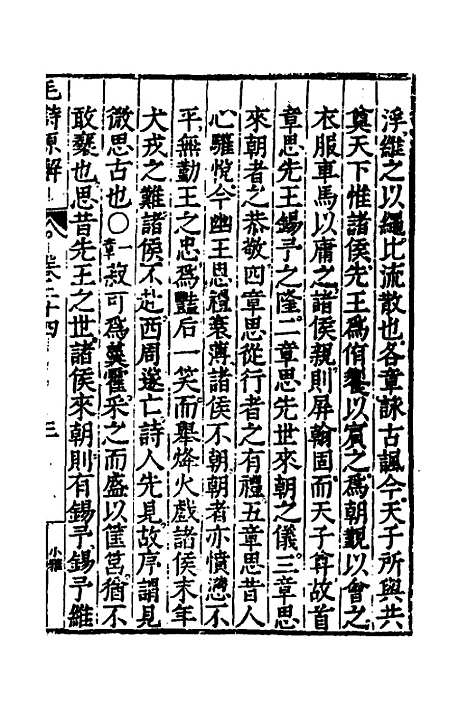 浮維之以纚比流散也各章詠古諷今天子所與共
奠天下惟諸侯先王為脩饔以賓之為朝覲以會之
衣服車馬以庸之諸侯親則屏翰固而天子尊故首
章思先王錫予之隆二章思先世來朝之儀三章思
來朝者之恭敬四章思從行者之有禮五章思昔人
心驩悅今幽王恩禮衰薄諸侯不朝朝者亦憤懣不
平無勤王之忠為豔后一笑而舉烽火戲諸侯末年
犬戎之難諸侯不赴西周遂亡詩人先見故序謂見
微思古也〇一章菽可為羹藿采之而盛以筐筥猶不
敢褻也思昔先王之世諸侯來朝則有錫予錫予維
毛詩原解 卷二十四 三 小雅